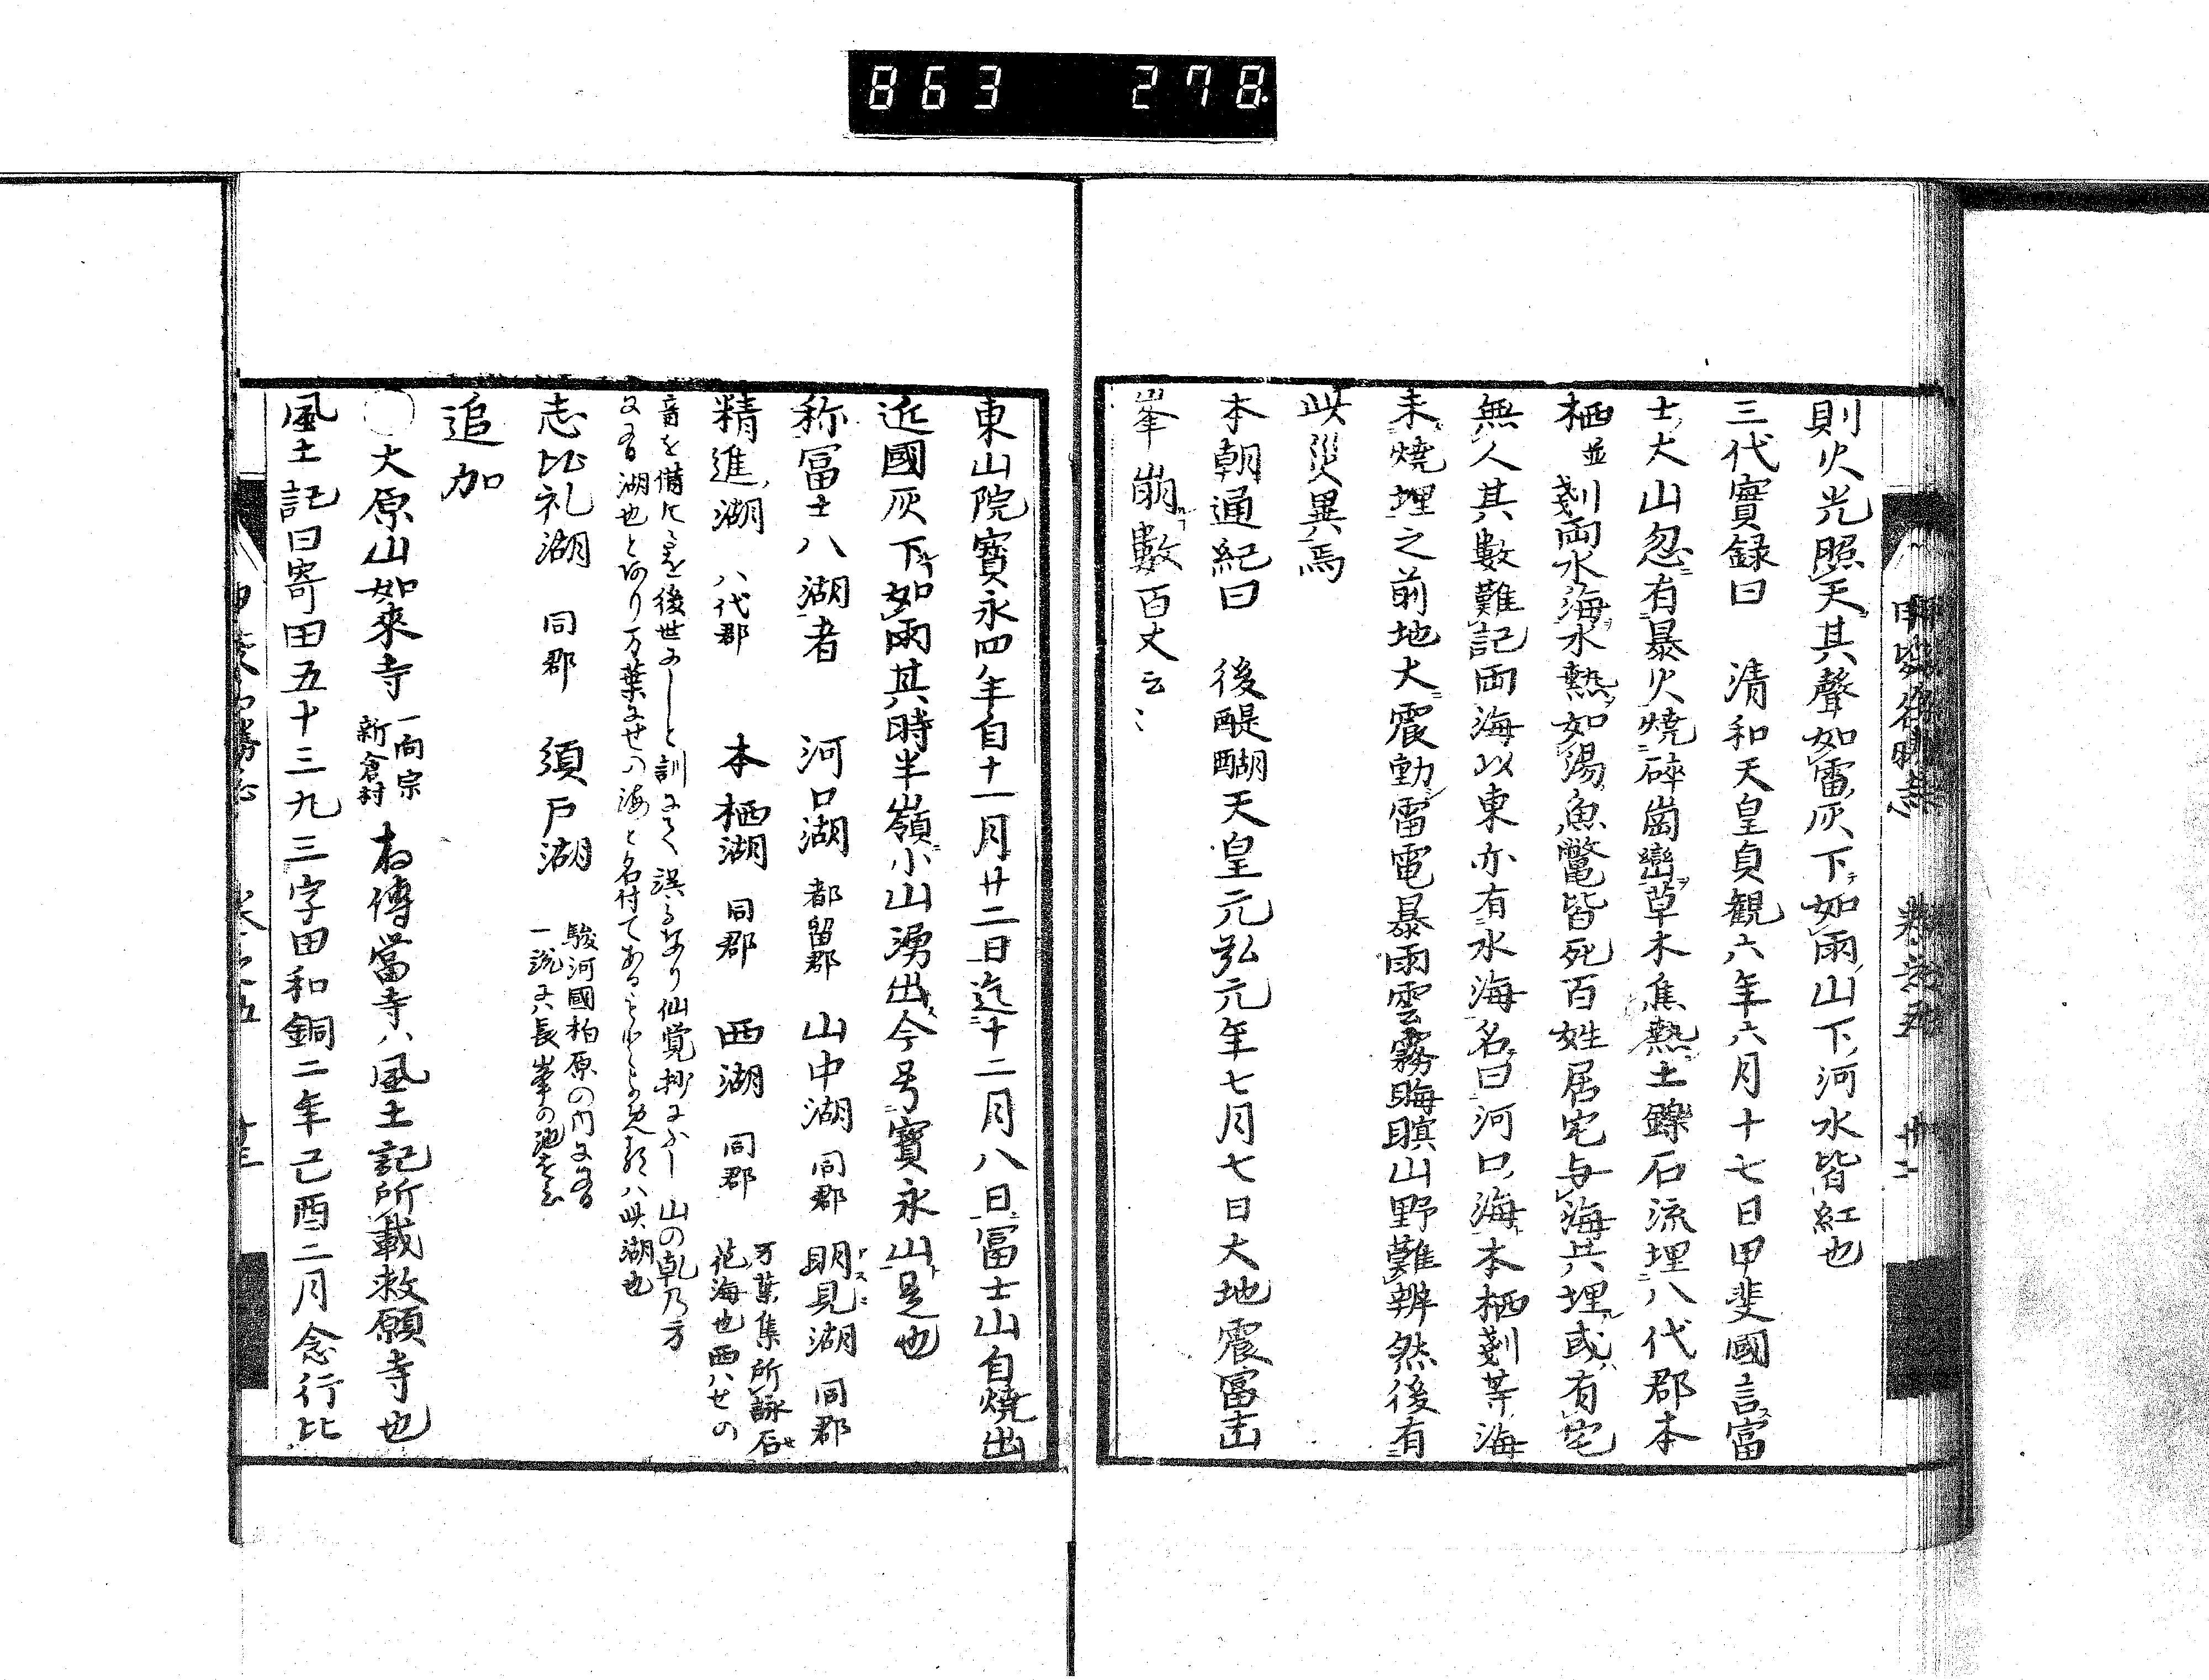 863 278
則火光照天其聲如雷灰下如雨山下河水皆紅也
三代實録曰 清和天皇貞観六年六月十七日甲斐國言冨
士大山忽有暴火焼碎崗巒草木焦熱土鑠石流埋八代郡本
栖並剗両水海水熱如湯魚鼈皆死百姓居宅与海共埋或有宅
無人其數難記両海以東亦有水海名曰河口海本栖剗等海
未焼埋之前地大震動雷電暴雨雲霧晦暝山野難辨然後有
此災異焉
本朝通紀曰 後醍醐天皇元弘元年七月七日大地震冨士
峯崩數百丈云〻
東山院寳永四年自十一月廿二日迄十二月八日冨士山自焼出
近國灰下如雨其時半嶺小山湧出今号寳永山是也
称冨士八湖者 河口湖 都留郡 山中湖 同郡 明見湖 同郡
精進湖 八代郡 本栖湖 同郡 西湖 同郡 万葉集所詠石
花海也西ハせの
音を備た 後世 しと訓 誤 なり仙覚抄 山の乾乃方
湖也と あり万葉 せの海と名付てある ハ此湖也
志比礼湖 同郡 須戸湖 駿河國柏原の
一説 ハ長峯の池を
追加
〇大原山如來寺 一向宗
新倉村 相傳當寺ハ風土記所載救願寺也
風土記曰寄田五十三九三字田和銅二年己酉二月念行比